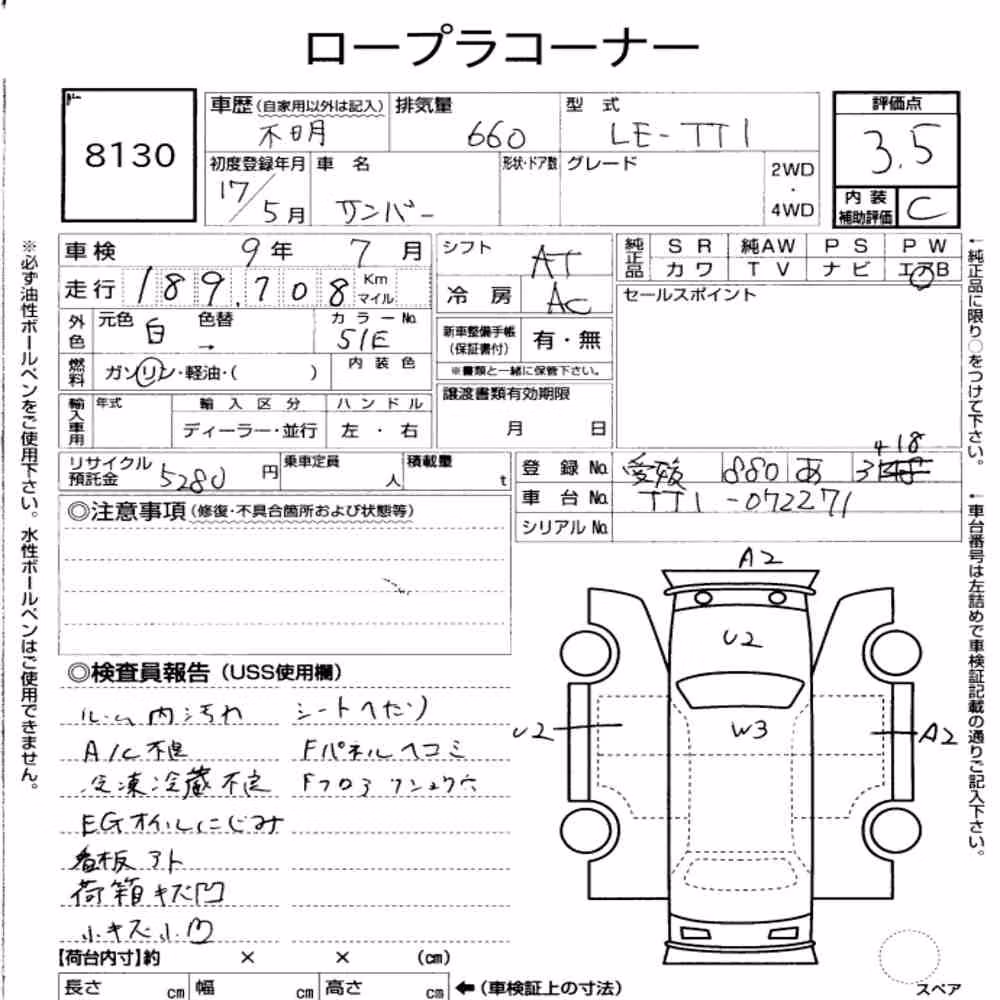 ロープラコーナー
8130
車歴（自家用以外は記入） 排気量 型 式 評価点
不日月 660 LE-TT1 3.5
初度登録年月 車 名 形状・ドア数 グレード 2WD・4WD
17/5月 サンバー
内装補助評価 C
車検 9年 7月 シフト AT 純正品 SR 純AW PS PW
カワ TV ナビ エアB
走行 189,708 Km マイル 冷 房 AC セールスポイント
外色 元色 白 色替 → カラーNo. 51E
新車整備手帳（保証書付） 有・無
※書類と一緒に保管下さい。
燃料 ガソリン・軽油・（ ） 内装色
輸入車用 年式 輸入区分 ハンドル
ディーラー・並行 左・右
譲渡書類有効期限
月 日
リサイクル預託金 5280円 乗車定員 人 積載量 t
登録No. 愛媛 880 あ 418
車台No. TT1-072271
シリアルNo.
◎注意事項（修復・不具合箇所および状態等）
◎検査員報告（USS使用欄）
ルーム内汚れ シートヘたり
A/C不良 Fパネルヘコミ
冷凍冷蔵不良 Fフロアフショク穴
EGオイルにじみ
看板アト
荷箱キズ凹
小キズ小凹
A2
U2
W3
U2
A2
スペア
【荷台内寸】約 × × （cm）
長さ cm 幅 cm 高さ cm ←（車検証上の寸法）
※必ず油性ボールペンをご使用下さい。水性ボールペンはご使用できません。
←純正品に限り○をつけて下さい。
←車台番号は左詰めで車検証記載の通りご記入下さい。